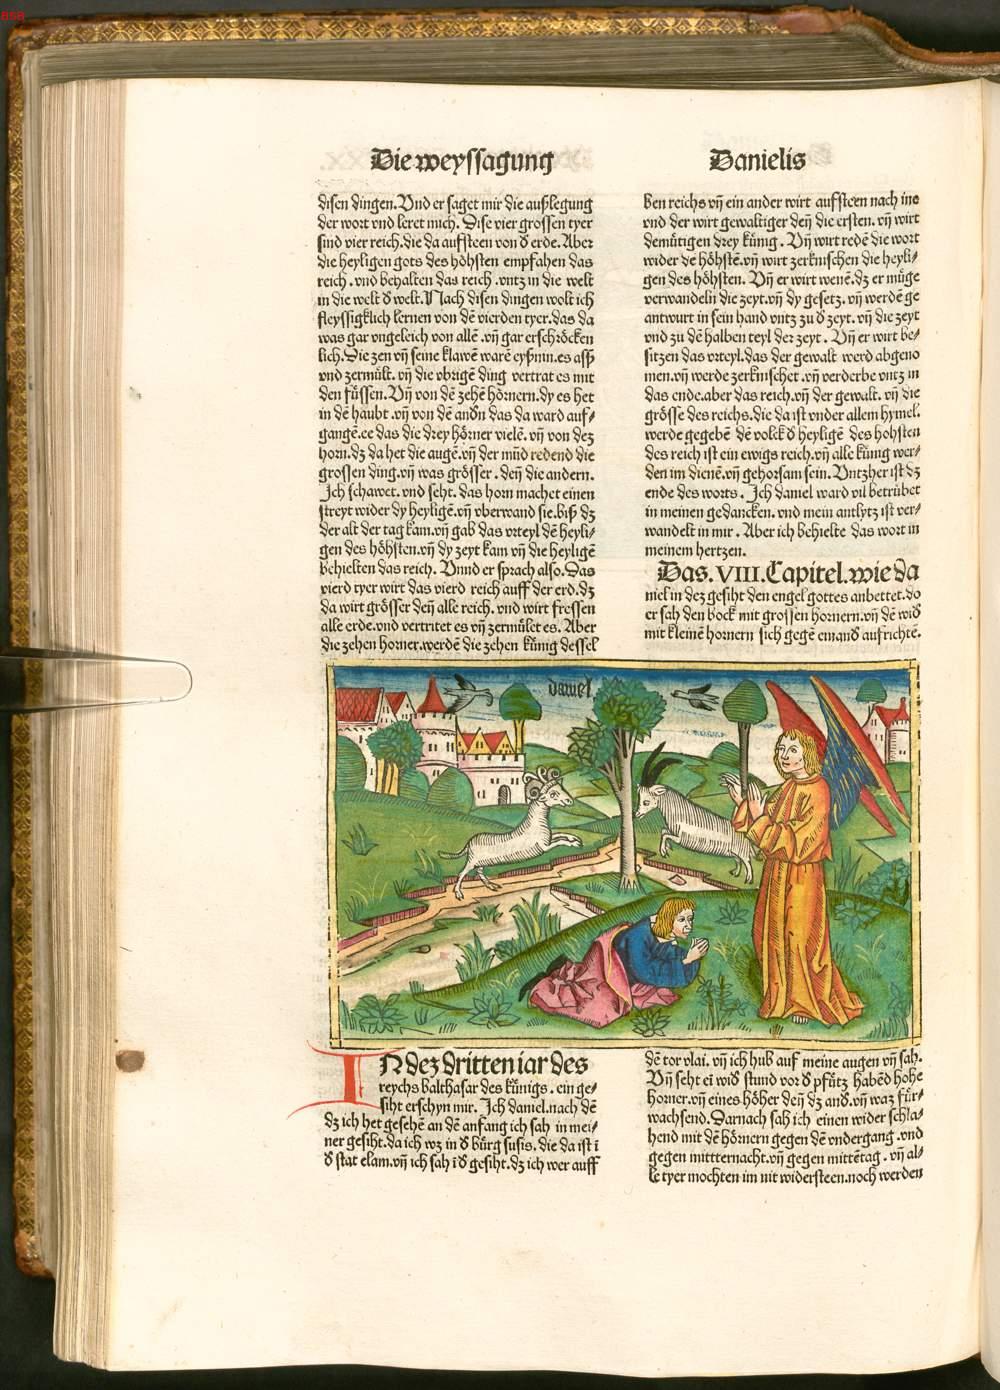 858
Die weyssagung
Danielis
disen dingen. Vnd er saget mir die außlegung
der wort vnd leret mich. Dise vier grossen tyer
sind vier reich. die da aufsteen von d̕ erde. Aber
die heyligen gots des höhsten empfahen das
reich. vnd behalten das reich. vntz in die welt
in die welt d̕ welt. Nach disen dingen wolt ich
fleyssigklich lernen von dē vierden tyer. das da
was gar vngeleich von allē. vn̄ gar erschröcken
lich. Die zen vn̄ seine klawē warē eyßnin. es aß
vnd zermült. vn̄ die vbrigē ding vertrat es mit
den füssen. Vn̄ von dē zehē hörnern. dy es het
in dē haubt. vn̄ von dē andn̄ das da ward auf⸗
gangē. ee das die drey hörner vielē. vn̄ von dez
horn. dz da het die augē. vn̄ der mūd redend die
grossen ding. vn̄ was grösser. den̄ die andern.
Ich schawet. vnd seht. das horn machet einen
streyt wider dy heyligē. vn̄ vberwand sie. biß dz
der alt der tag kam. vn̄ gab das vrteyl dē heyli⸗
gen des höhsten. vn̄ dy zeyt kam vn̄ die heyligē
behielten das reich. Vnnd er sprach also. Das
vierd tyer wirt das vierd reich auff der erd. dz
da wirt grösser den̄ alle reich. vnd wirt fressen
alle erde. vnd vertritet es vn̄ zermület es. Aber
die zehen horner. werdē die zehen künig dessel
ben reichs vn̄ ein ander wirt aufsteen nach ine
vnd der wirt gewaltiger den̄ die ersten. vn̄ wirt
demütigen drey künig. Vn̄ wirt redē die wort
wider dē höhstē. vn̄ wirt zerknischen die heyli⸗
gen des höhsten. Vn̄ er wirt wenē. dz er müge
verwandeln die zeyt. vn̄ dy gesetz. vn̄ werdē ge
antwurt in sein hand vntz zu d̕ zeyt. vn̄ die zeyt
vnd zu dē halben teyl der zeyt. Vn̄ er wirt be⸗
sitzen das vrteyl. das der gewalt werd abgeno
men. vn̄ werde zerknischet. vn̄ verderbe vntz in
das ende. aber das reich. vn̄ der gewalt. vn̄ die
grösse des reichs. die da ist vnder allem hymel.
werde gegebē dē volck d̕ heyligē des hohsten
des reich ist ein ewigs reich. vn̄ alle künig wer⸗
den im dienē. vn̄ gehorsam sein. Vntzher ist dz
ende des worts. Ich daniel ward vil betrübet
in meinen gedancken. vnd mein antlytz ist ver⸗
wandelt in mir. Aber ich behielte das wort in
meinem hertzen.
Das. VIII. Capitel. wie da
niel in dez gesiht den engel gottes anbettet. do
er sah den bock mit grossen hornern. vn̄ dē wid̕
mit kleinē hornern sich gegē einand̕ aufrichtē.
daniel
IN dez dritten iar des
reychs balthasar des künigs. ein ge⸗
siht erschyn mir. Ich daniel. nach dē
dz ich het gesehē an dē anfang ich sah in mei⸗
ner gesiht. da ich wz in d̕ bürg susis. die da ist ī
d̕ stat elam. vn̄ ich sah ī d̕ gesiht. dz ich wer auff
dē tor vlai. vn̄ ich hub auf meine augen vn̄ sah.
Vn̄ seht eī wid̕ stund vor d̕ pfütz habēd hohe
horner. vn̄ eines höher den̄ dz and̕. vn̄ waz für⸗
wachsend. Darnach sah ich einen wider schla⸗
hend mit dē hörnern gegen dē vndergang. vnd
gegen mitternacht. vn̄ gegen mittētag. vn̄ al⸗
le tyer mochten im nit widersteen. noch werden